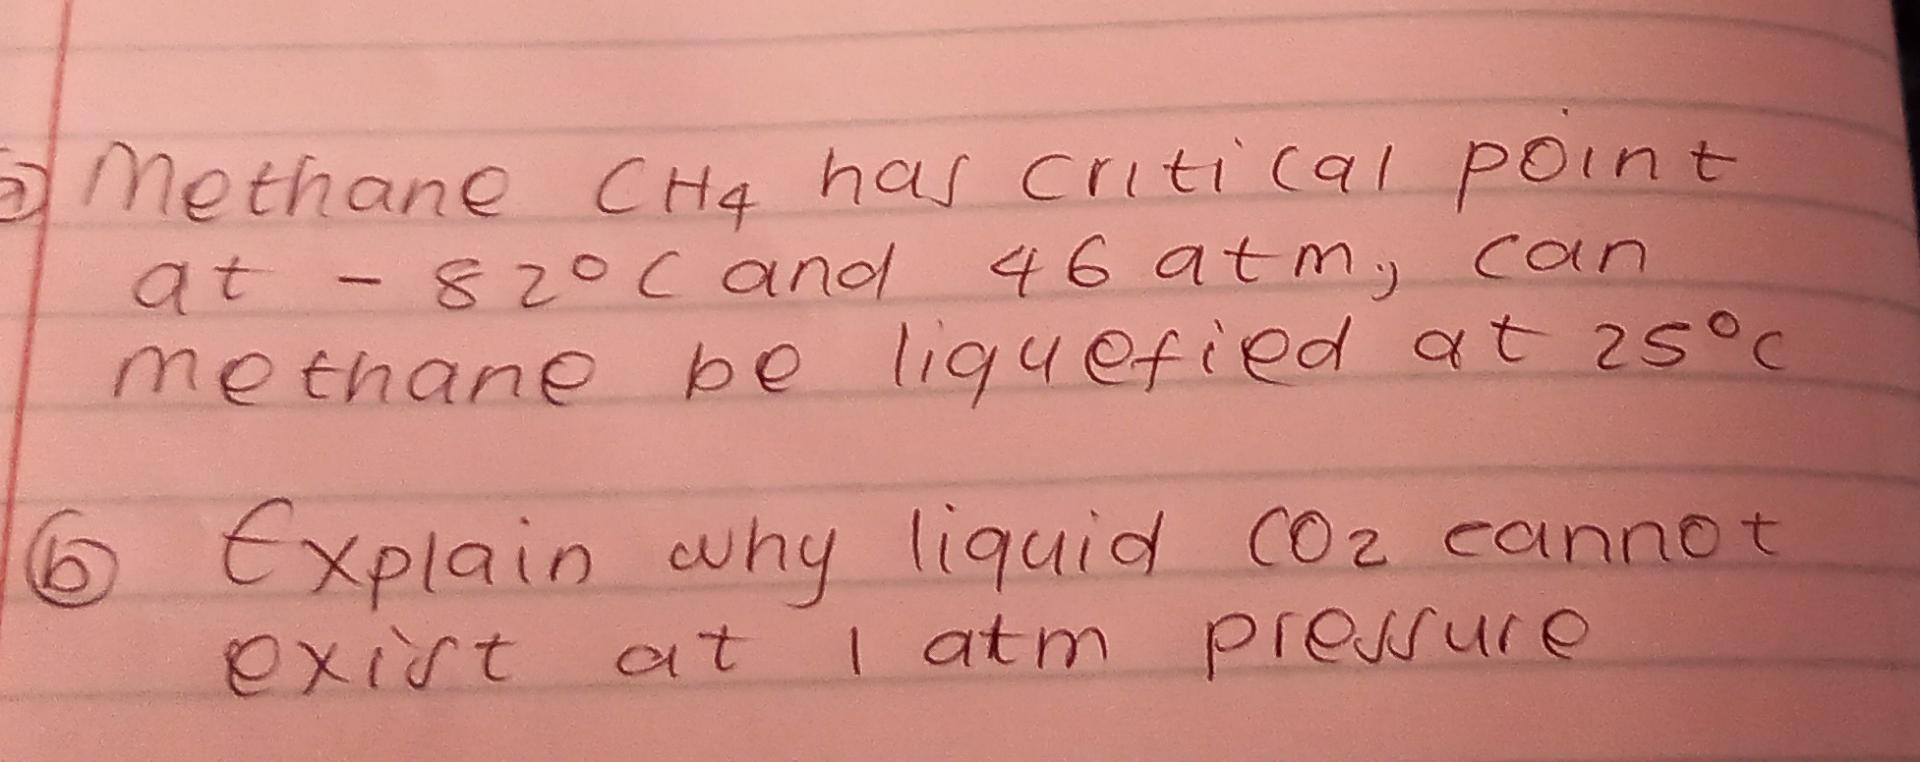 a) Methane CH4 has critical point
at - 82°C and 46 atm, can
methane be liquefied at 25°C
b Explain why liquid CO2 cannot
exist at 1 atm pressure